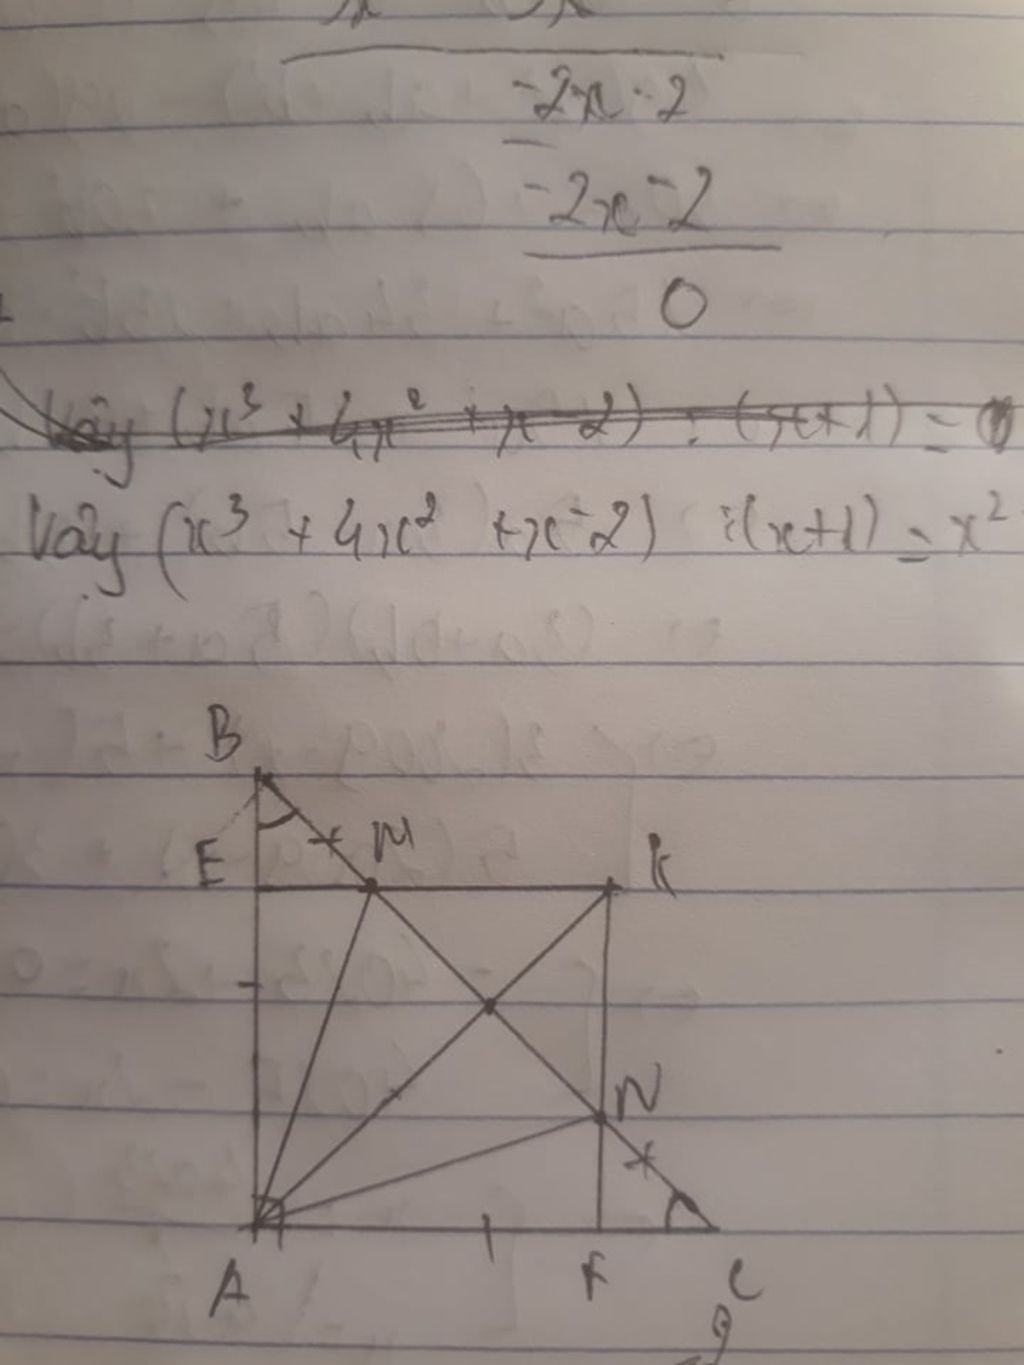 -2x-2
-2x-2
0
Vậy (x³ + 4x² + x - 2) : (x+1) = 0
Vậy (x³ + 4x² + x - 2) : (x+1) = x²
B
E M K
N
A F C